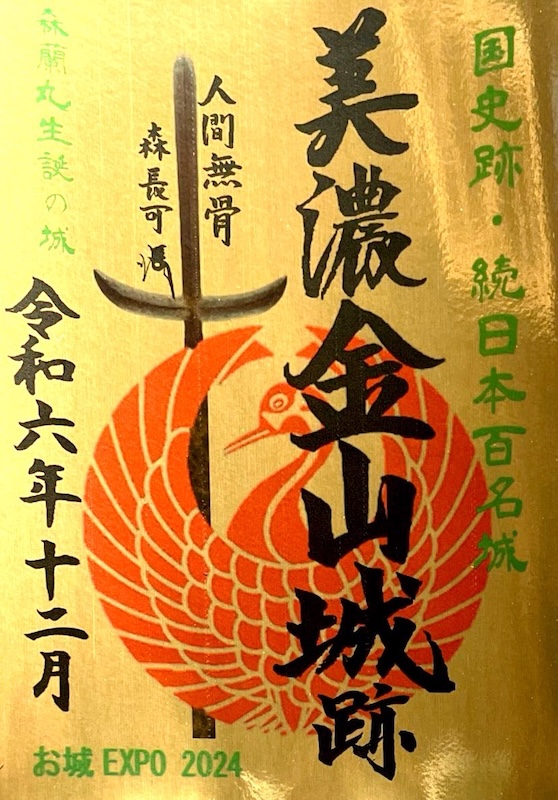 国史跡・続日本百名城
美濃金山城跡
人間無骨
森長可
森蘭丸生誕の城
令和六年十二月
お城 EXPO 2024